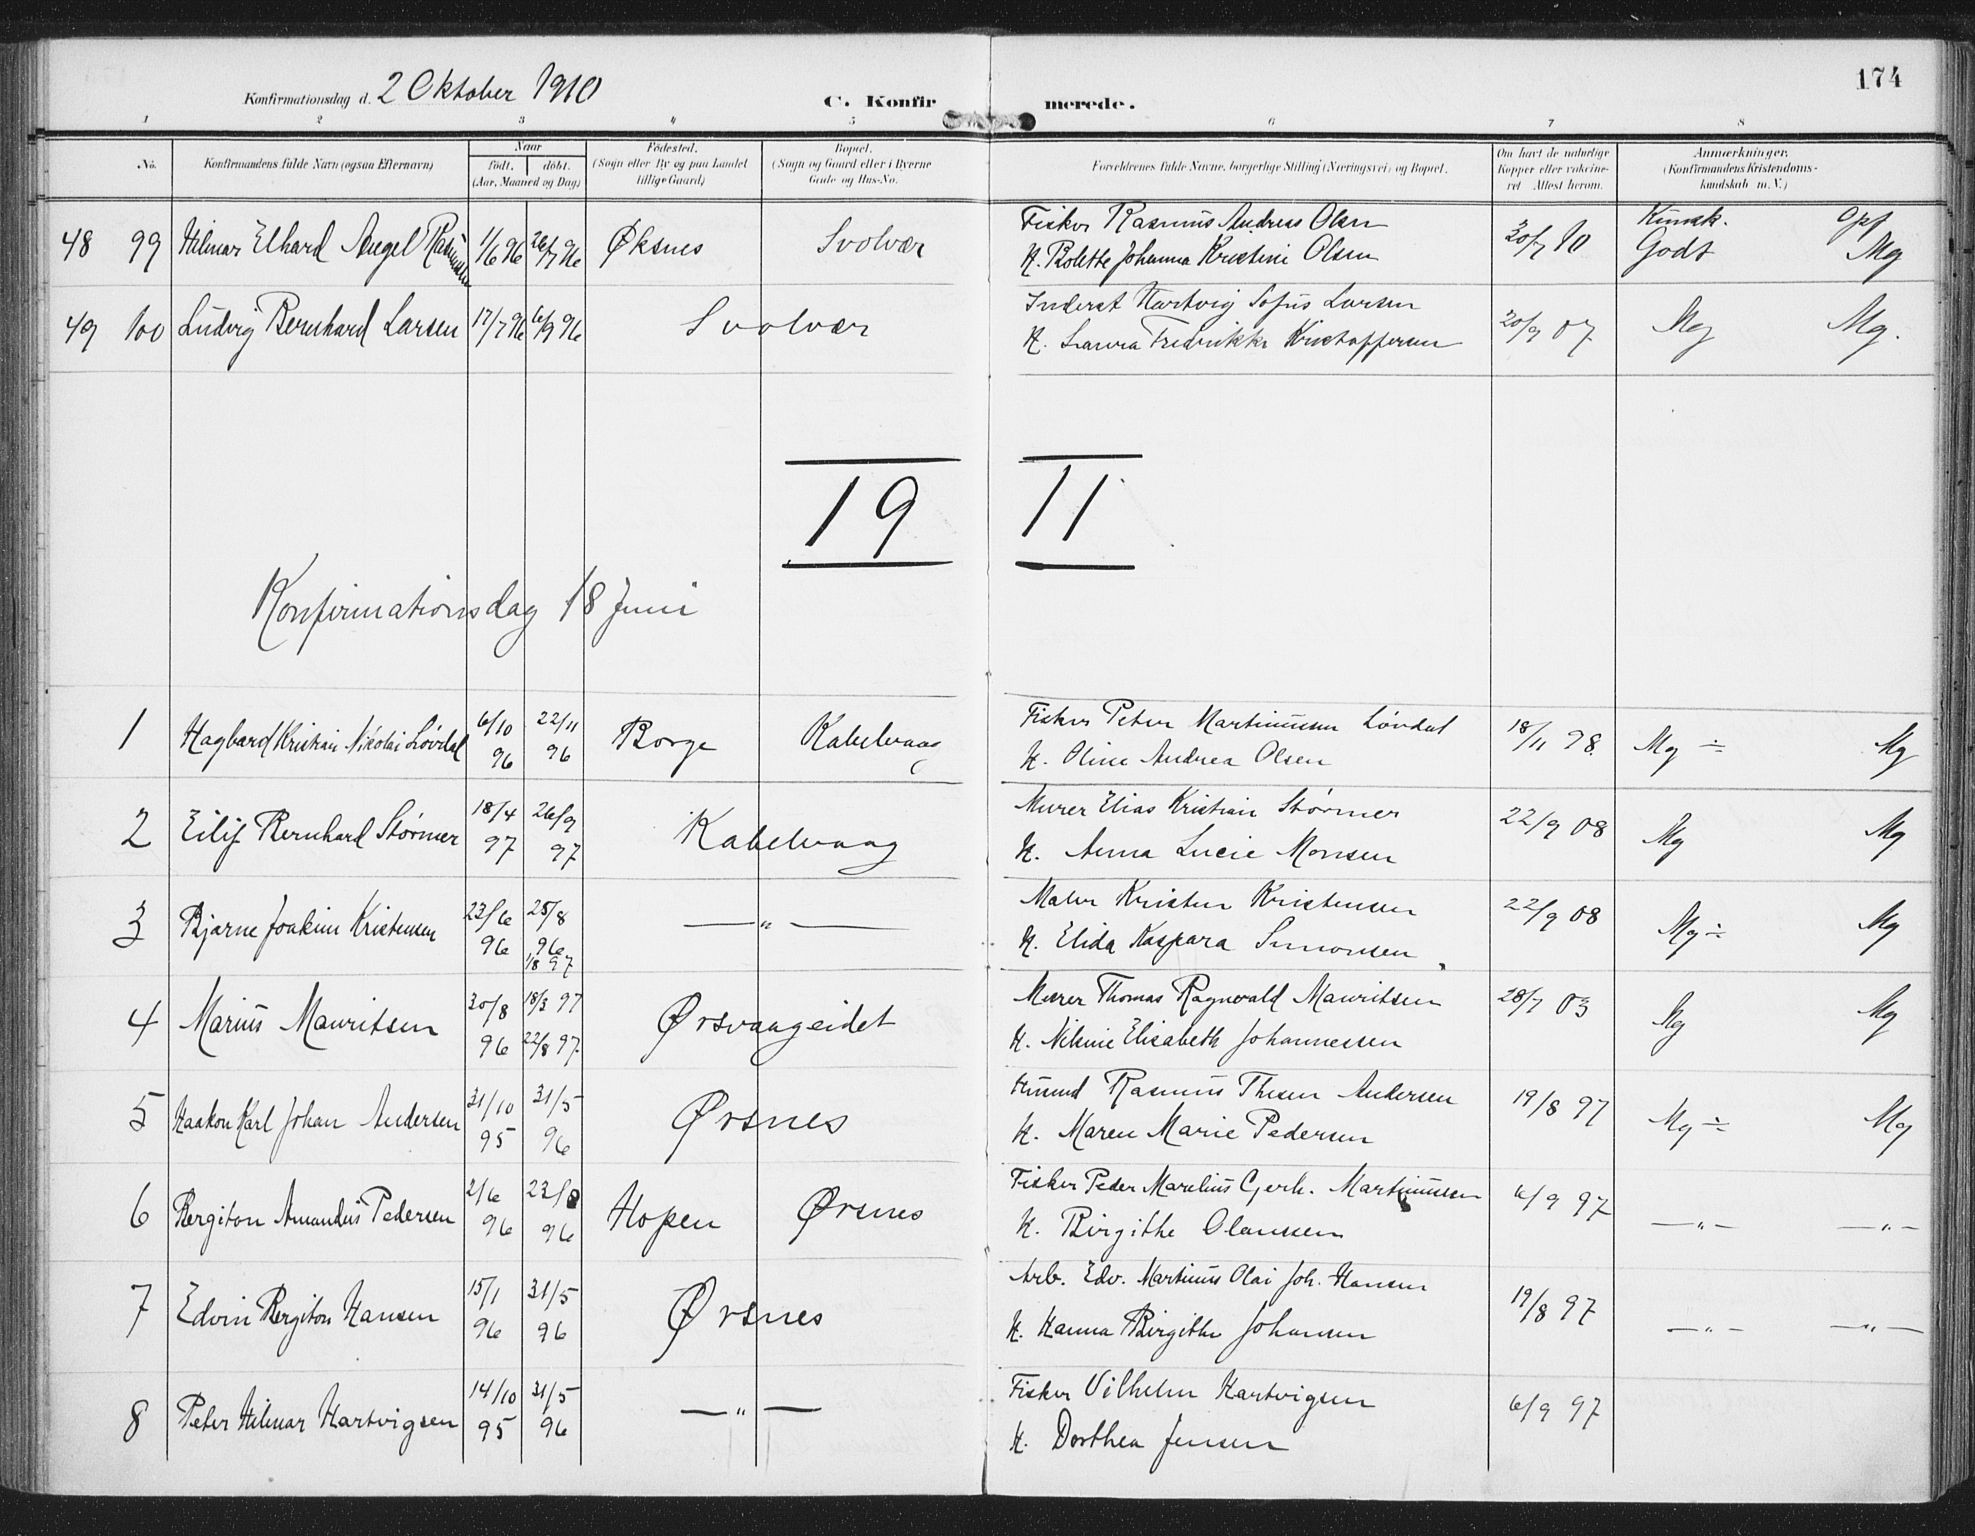 174
Konfirmationsdag d. 2 Oktober 1910
C. Konfirmerede.
1 2 3 4 5 6 7 8
No.
Konfirmandens fulde Navn (ogsaa Efternavn)
Naar
født. døbt.
(Aar, Maaned og Dag)
Fødested.
(Sogn eller By og paa Landet
tillige Gaard)
Bopæl.
(Sogn og Gaard eller i Byerne
Gade og Hus-No.
Forældrenes fulde Navne, borgerlige Stilling (Næringsvei) og Bopæl.
Om havt de naturlige
Kopper eller vakcine-
ret Attest herom.
Anmærkninger.
(Konfirmandens Kristendoms-
kundskab m. V.)
Kundsk. Opf
48 99 Hilmar Elhard Angel Rasmussen 1/6 96 26/7 96 Øksnes Svolvær Fisker Rasmus Andreas Olsen 30/7 10 Godt Mg
H. Bolette Johanna Kristine Olsen
49 100 Ludvig Bernhard Larsen 17/7 96 6/9 96 Svolvær Inderst Hartvig Sofus Larsen 20/9 07 Mg Mg.
H. Laura Fredrikke Kristoffersen
19 11
Konfirmationsdag 18 Juni
1 Hagbard Kristian Nikolai Løvdal 6/10 96 22/11 96 Borge Kabelvaag Fisker Peter Martinussen Løvdal 18/11 98 Mg ÷ Mg
H. Oline Andrea Olsen
2 Eilif Bernhard Størmer 18/4 97 26/9 97 Kabelvaag Murer Elias Kristian Størmer 22/9 08 Mg Mg
H. Anna Lucie Monsen
3 Bjarne Joakim Kristensen 23/6 96 25/8 96 — " — Maler Kristen Kristensen 22/9 08 Mg ÷ Mg
H. Elida Kaspara Simonsen
4 Marius Mauritsen 30/8 96 1/8 97 18/3 97 22/8 97 Ørsvaageidet Murer Thomas Ragnvald Mauritsen 28/7 03 Mg Mg
H. Nilsine Elisabeth Johannessen
5 Haakon Karl Johan Andersen 31/10 95 31/5 96 Ørsnes Husmd Rasmus Thesen Andersen 19/8 97 Mg ÷ Mg
H. Maren Marie Pedersen
6 Bergiton Amandus Pedersen 2/6 96 23/8 96 Hopen Ørsnes Fisker Peder Marelius Gerh. Martinussen 6/9 97 — " — — " —
H. Birgithe Olaussen
7 Edvin Bergiton Hansen 15/1 96 31/5 96 Ørsnes Arb. Edv. Martinus Olai Joh. Hansen 19/8 97 — " — — " —
H. Hanna Birgithe Johansen
8 Peter Hilmar Hartvigsen 14/10 95 31/5 96 — " — Fisker Vilhelm Hartvigsen 6/9 97
H. Dorthea Jensen